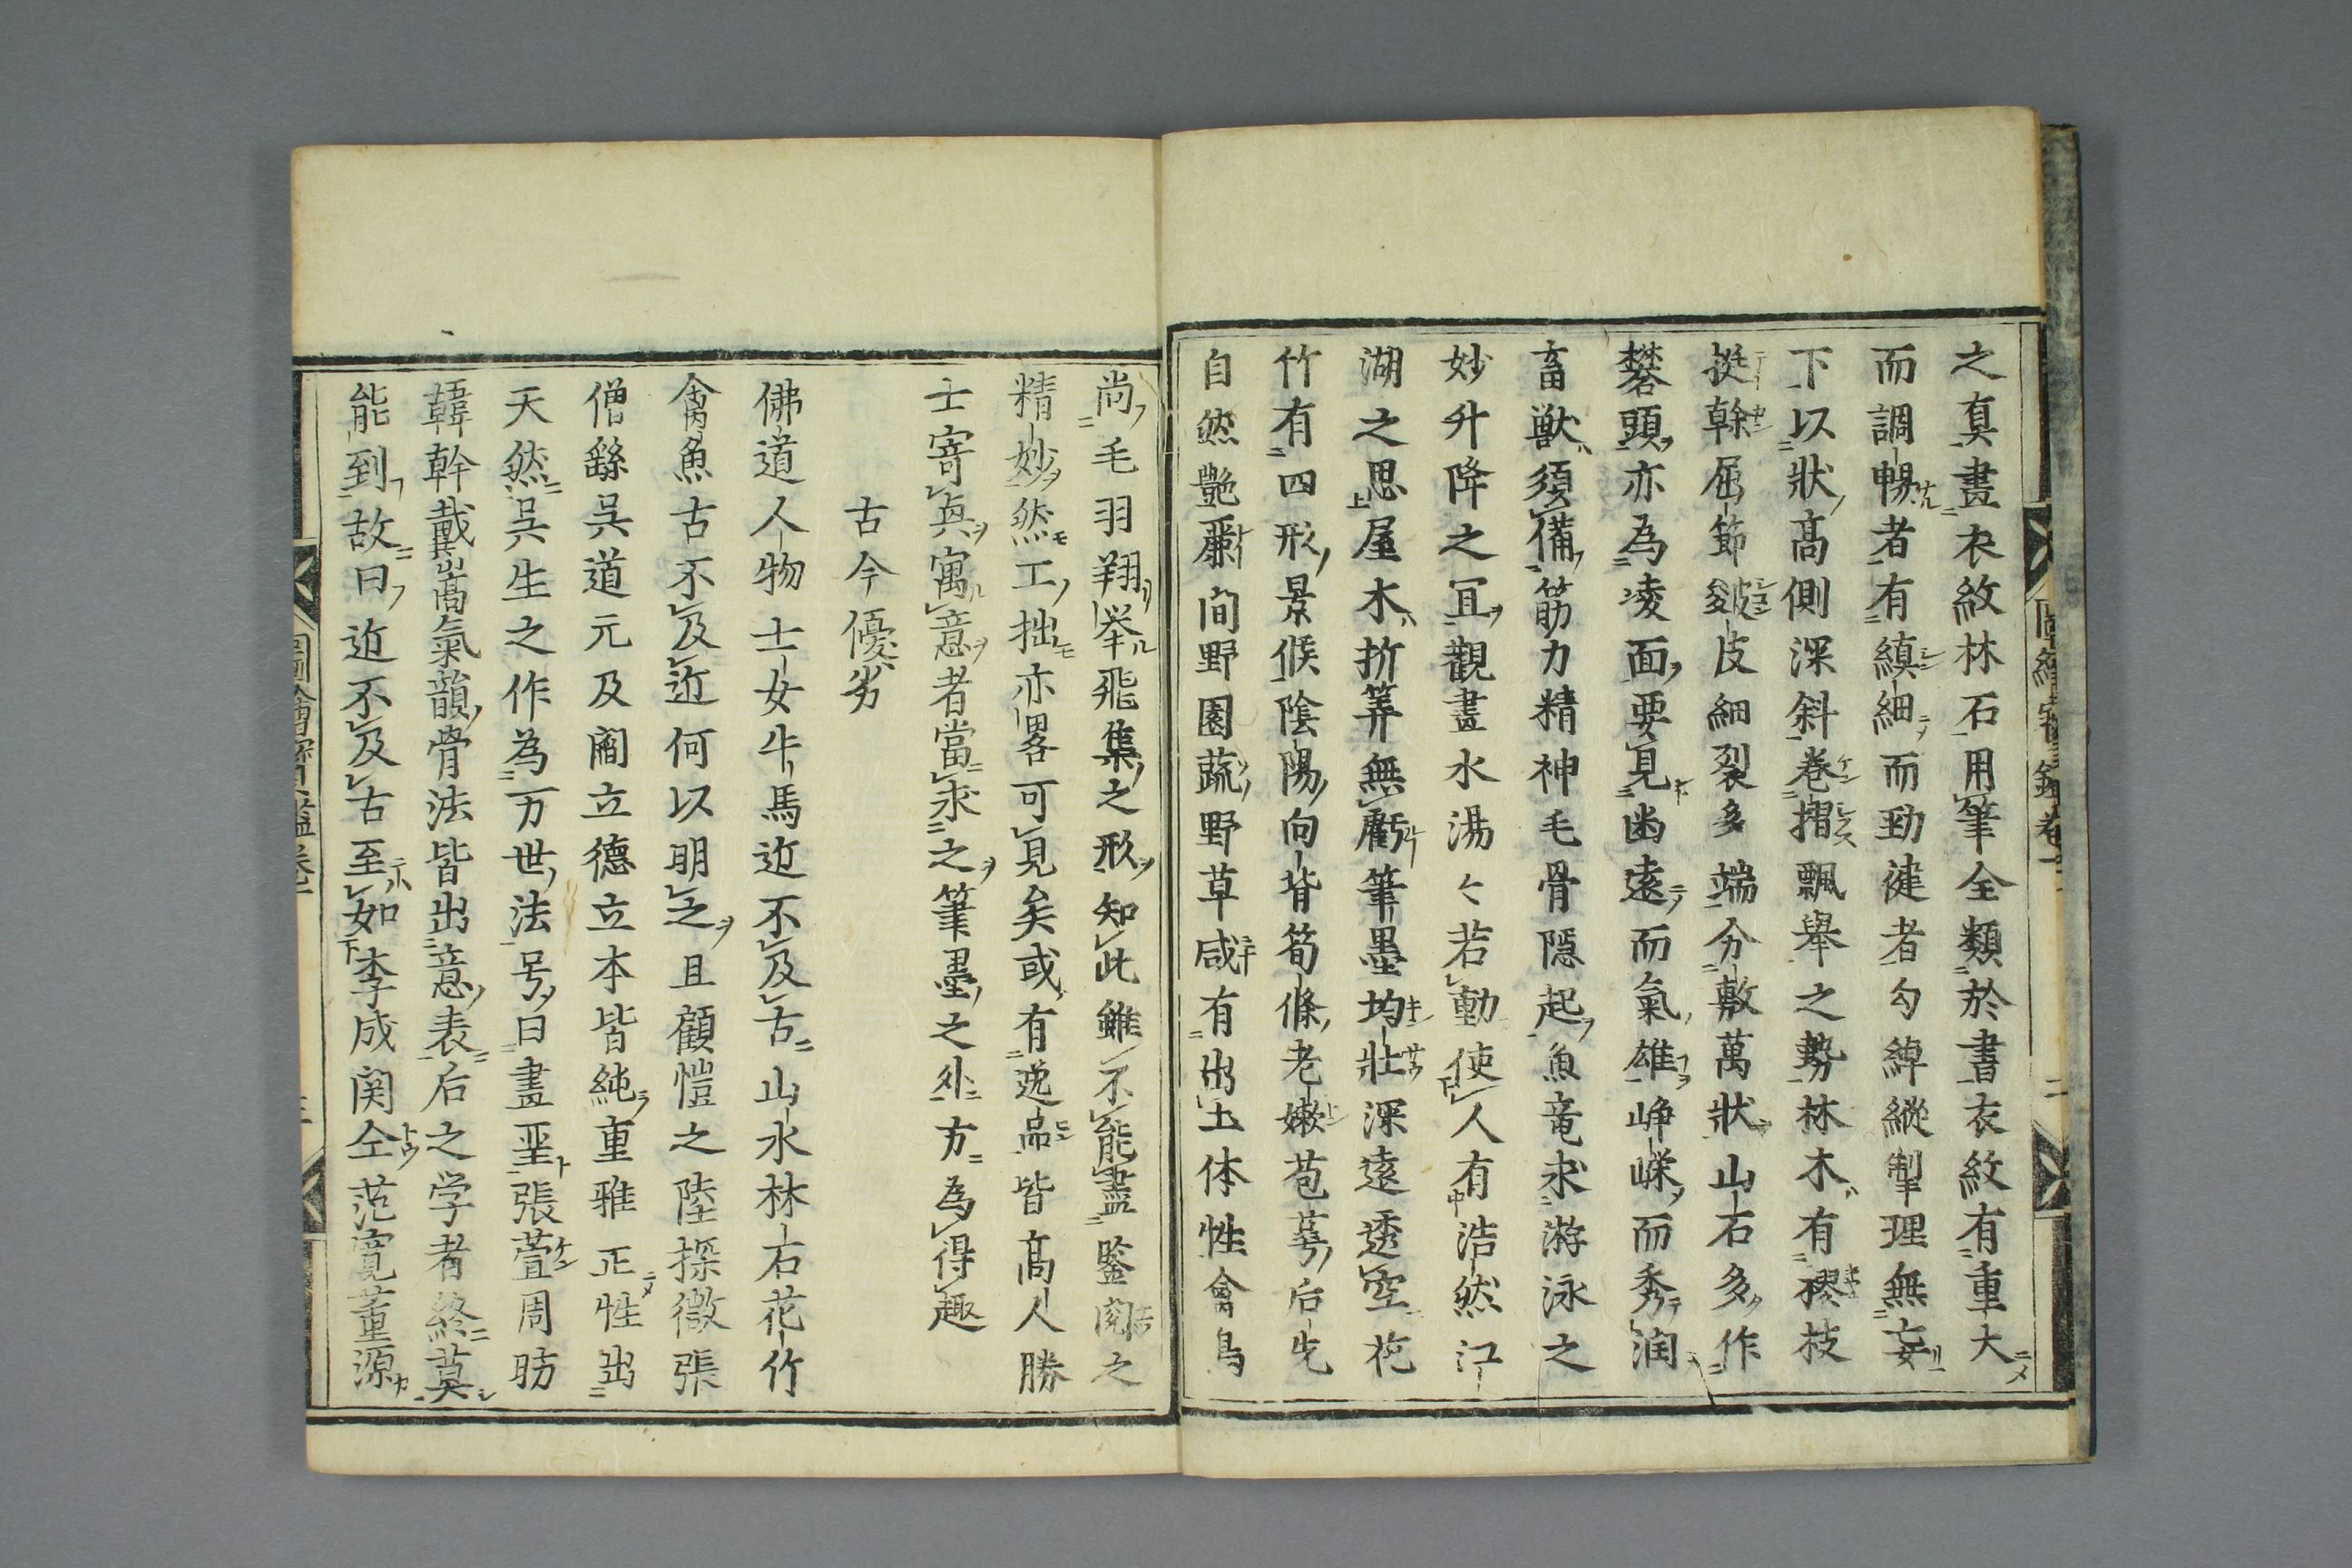 之真畫衣紋林石用筆全類於書衣紋有重大
而調暢者有縝細而勁健者勾綽縱掣理無妄
下以狀高側深斜卷摺飄舉之勢林木有樛枝
挺幹屈節皴皮細裂多端分敷萬狀山石多作
礬頭亦為凌面要見幽遠而氣雄崢嶸而秀润
畜獣須備筋力精神毛骨隠起魚竜求游泳之
妙升降之冝觀畫水湯々若動使人有浩然江
湖之思屋木折筭無虧筆墨均壯深遠透空花
竹有四形景候陰陽向背筍條老嫩苞萼后先
自然艶麗间野園蔬野草咸有出土体性禽鳥
圖繪寳鑑卷一
二
尚毛羽翔举飛集之形知此雖不能盡鉴阅之
精妙然工拙亦畧可見矣或有逸品皆高人勝
士寄興寓意者當求之筆墨之外方為得趣
古今優劣
佛道人物士女牛馬近不及古山水林石花竹
禽魚古不及近何以明之且顧愷之陸探微張
僧繇呉道元及閻立德立本皆純重雅正性出
天然呉生之作為万世法号曰畫聖張萱周昉
韓幹戴嵩氣韻骨法皆出意表后之学者終莫
能到故曰近不及古至如李成関仝范寛董源
圖繪寳鑑卷一